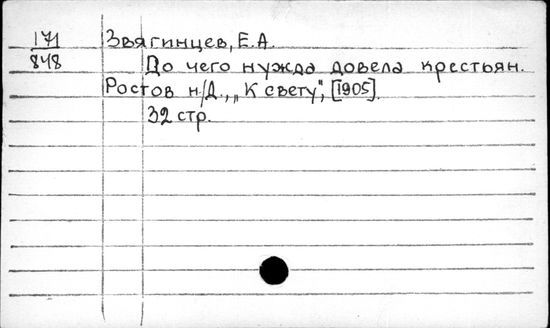 171 Звягинцев, Е.А.
848 До чего нужда довела крестьян.
Ростов н/Д., „К свету", [1905].
32 стр.